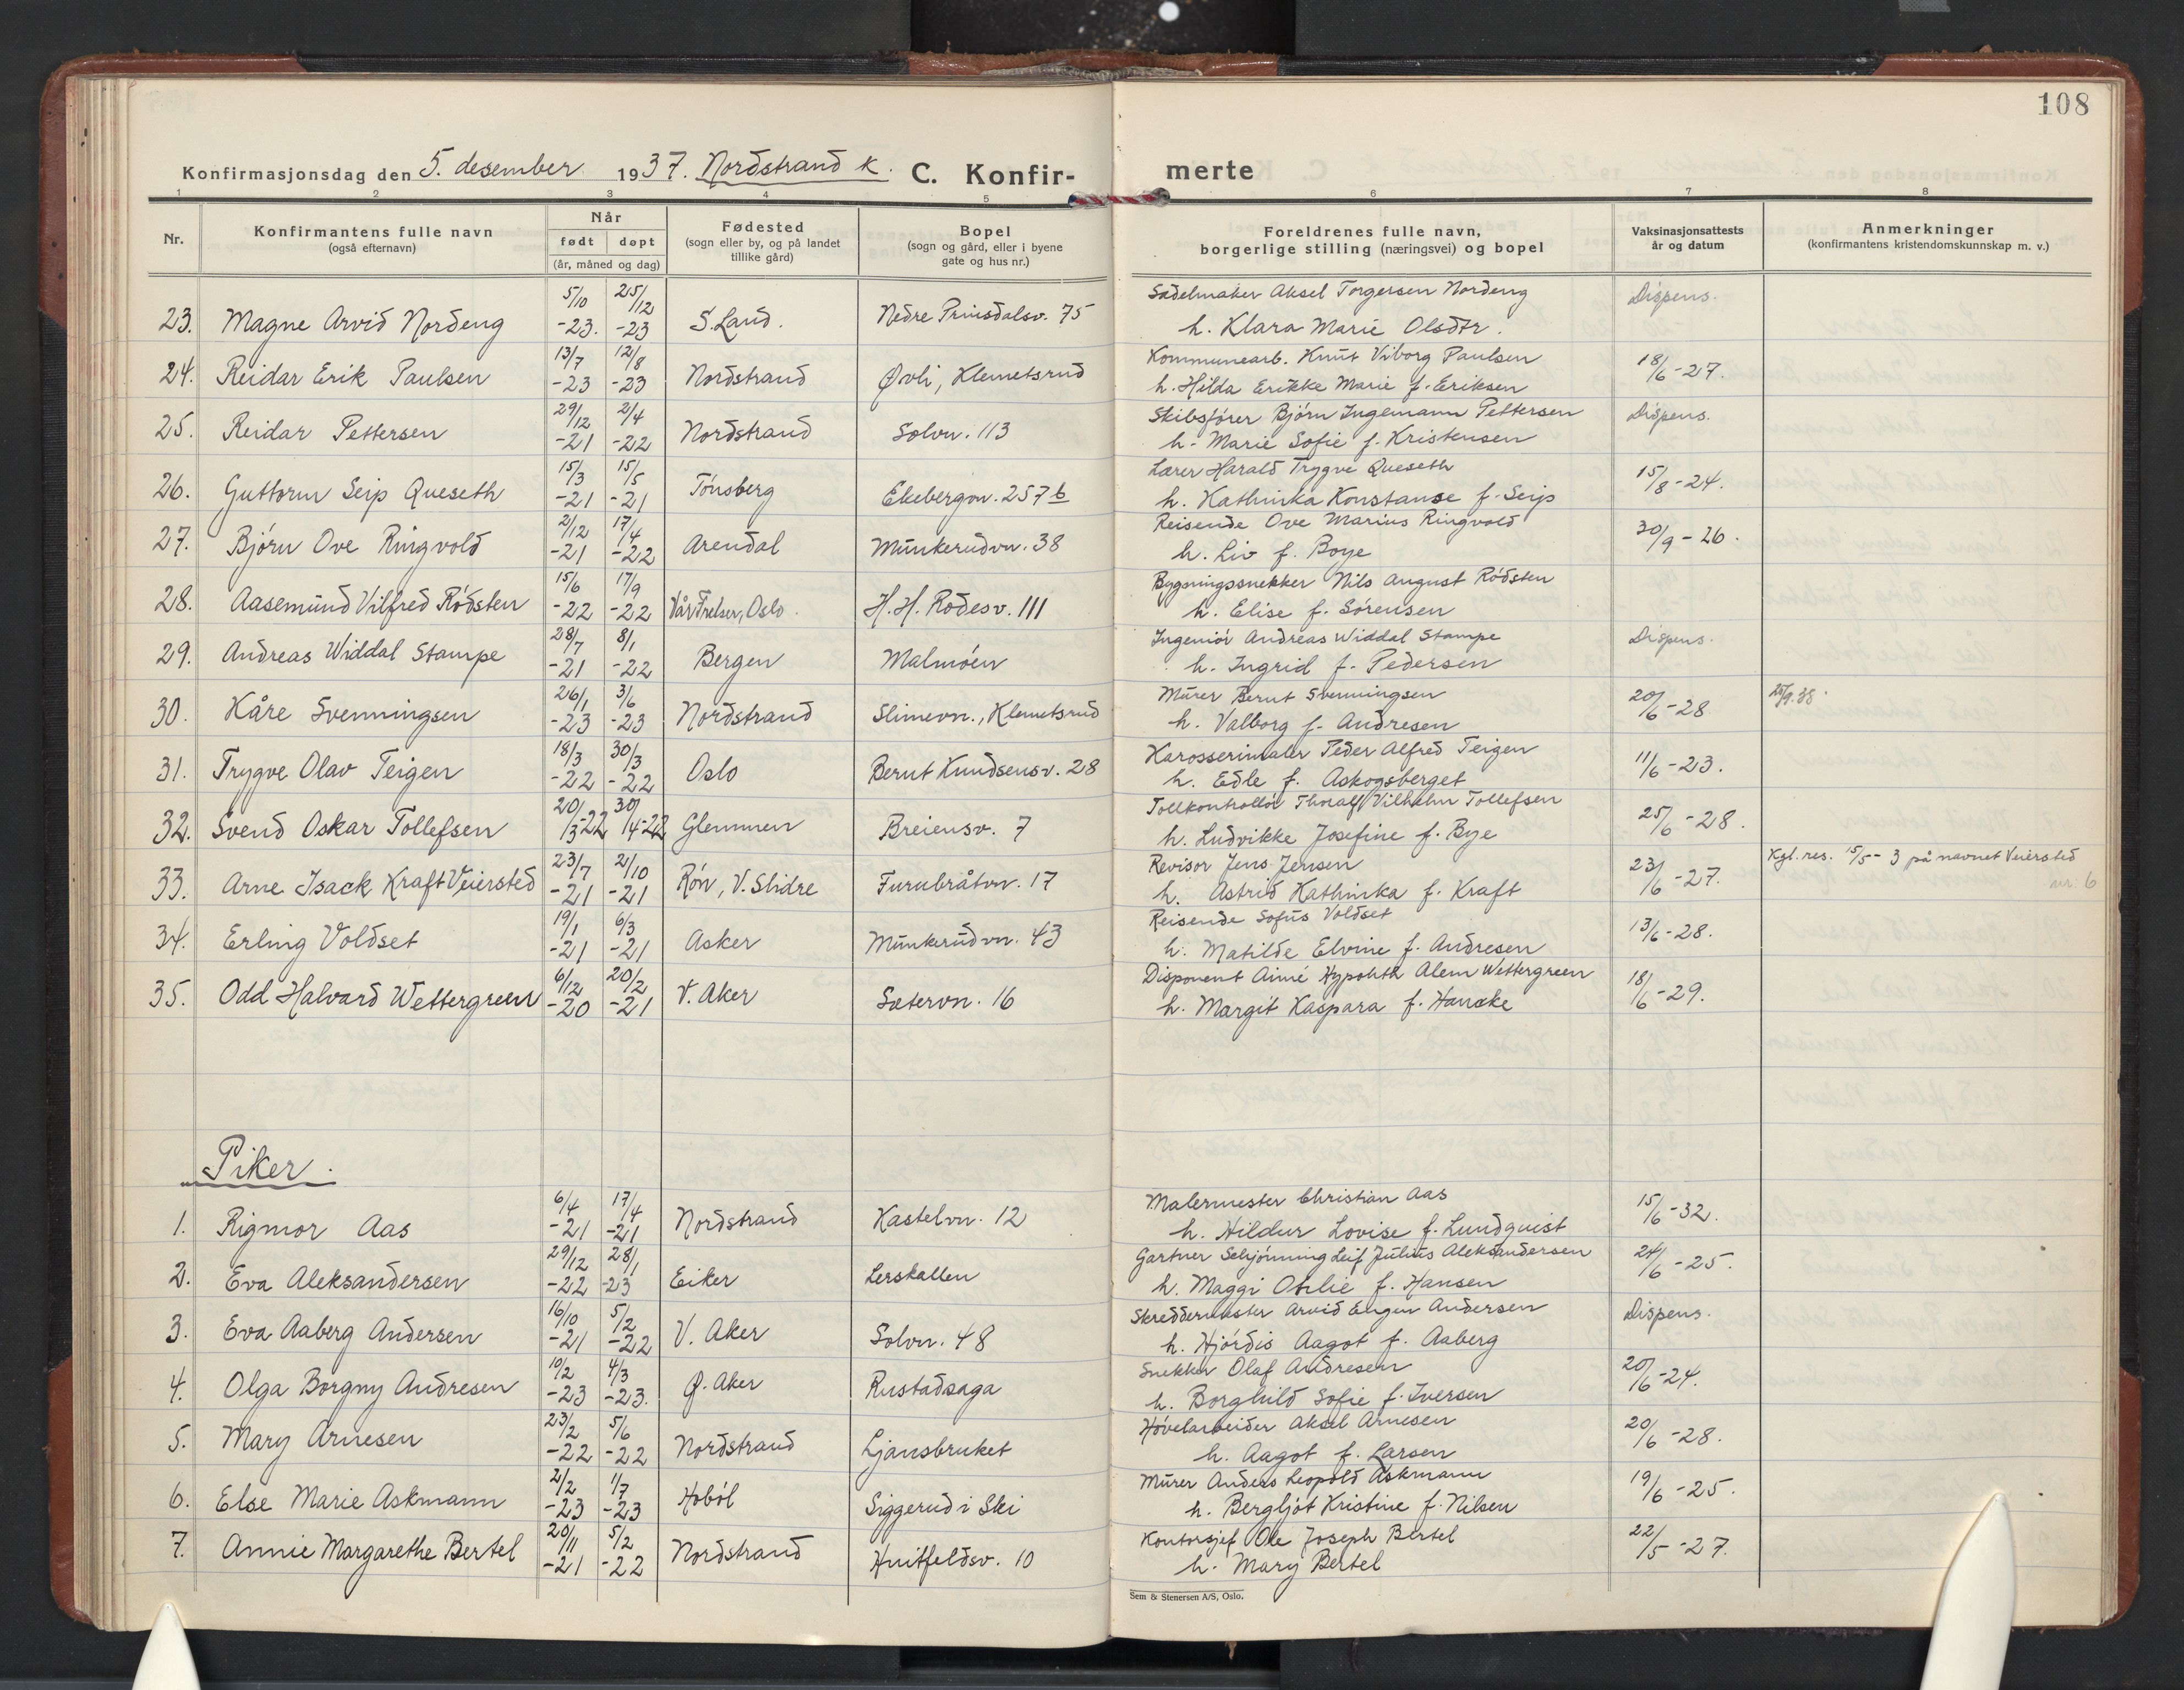 108
Konfirmasjonsdag den 5. desember 1937. Nordstrand k. C. Konfir-merte
1 2 3 4 5 6 7 8
Nr.
Konfirmantens fulle navn
(også efternavn)
Når
født døpt
(år, måned og dag)
Fødested
(sogn eller by, og på landet
tillike gård)
Bopel
(sogn og gård, eller i byene
gate og hus nr.)
Foreldrenes fulle navn,
borgerlige stilling (næringsvei) og bopel
Vaksinasjonsattests
år og datum
Anmerkninger
(konfirmantens kristendomskunnskap m. v.)
23. Magne Arvid Nordeng 5/10 -23. 25/12 -23 S. Land. Nedre Prinsdalsv. 75 Sadelmaker Aksel Torgersen Nordeng Dispens.
h. Klara Marie Olsdtr.
24. Reidar Erik Paulsen 13/7 -23 12/8 -23 Nordstrand Øvli, Klemetsrud Kommunearb. Knut Viborg Paulsen 18/6-27.
h. Hilda Erikke Marie f. Eriksen
25. Reidar Pettersen 29/12 -21 2/4 -22 Nordstrand Solvn. 113 Skibsfører Bjørn Ingemann Pettersen Dispens.
h. Marie Sofie f. Kristensen
26. Guttorm Seip Queseth 15/3 -21 15/5 -21 Tønsberg Ekebergvn. 257 b Lærer Harald Trygve Queseth 15/8-24.
h. Kathinka Konstanse f. Seip
27. Bjørn Ove Ringvold 2/12 -21 17/4 -22 Arendal Munkerudvn. 38 Reisende Ove Marius Ringvold 30/9-26.
h. Liv f. Boye
28. Aasemund Vilfred Rødsten 15/6 -22 17/9 -22 Vår Frelser, Oslo. H. H. Rodesv. 111 Bygningssnekker Nils August Rødsten
h. Elise f. Sørensen
29. Andreas Widdal Stampe 28/7 -21 8/1 -22 Bergen Malmøen Ingeniør Andreas Widdal Stampe Dispens.
h. Ingrid f. Pedersen
30. Kåre Svenningsen 26/1 -23 3/6 -23 Nordstrand Slimevn., Klemetsrud Murer Bernt Svenningsen 20/6-28
h. Valborg f. Andresen
31. Trygve Olav Teigen 18/3 -22 30/3 -22 Oslo Bernt Knudsensv. 28 Karosserimaler Peder Alfred Teigen 11/6-23.
h. Edle f. Askogsberget
32. Svend Oskar Tollefsen 20/3-22 30/4-22 Glemmen Breiensv. 7 Tollkontrollør Thoralf Vilhelm Tollefsen 25/6-28.
h. Ludvikke Josefine f. Bye
33. Arne Isack Kraft Veiersted 23/7 -21 2/10 -21 Røn, V. Slidre Furubråtvn. 17 Revisor Jens Jensen 23/6-27. Kgl. res. 15/5-3 på navnet Veiersted
h. Astrid Kathinka f. Kraft nr. 6
34. Erling Voldset 19/1 -21 6/3 -21 Asker Munkerudvn. 43 Reisende Sofus Voldset 13/6-28.
h. Matilde Elvine f. Andresen
35. Odd Halvard Wettergreen 6/12 -20 20/2 -21 V. Aker Sætervn. 16 Disponent Aimé Alem Wettergreen 18/6-29.
h. Margit Kaspara f. Hancke
Piker.
1. Rigmor Aas 6/4 -21 17/4 -21 Nordstrand Kastelvn. 12 Malermester Christian Aas 15/6-32.
h. Hildur Lovise f. Lundquist
2. Eva Aleksandersen 29/12 -22 28/1 -23 Eiker Lerskallen Gartner Schjønning Leif Julius Aleksandersen 24/6-25.
h. Maggi Otilie f. Hansen
3. Eva Aaberg Andersen 16/10 -21 5/2 -22 V. Aker Solvn. 48 Skreddermester Arvid Eugen Andersen Dispens.
h. Hjørdis Aagot f. Aaberg
4. Olga Borgny Andresen 10/2 -23 4/3 -23. Ø. Aker Rustadsaga Snekker Olaf Andresen 20/6-24.
h. Borghild Sofie f. Iversen
5. Mary Arnesen 23/2 -22 5/6 -22 Nordstrand Ljansbruket Høvelarbeider Aksel Arnesen 20/6-28.
h. Aagot f. Larsen
6. Else Marie Askmann 2/2 -23 1/7 -23 Hobøl Siggerud i Ski Murer Anders Leopold Askmann 19/6-25.
h. Bergljot Kristine f. Nilsen
7. Annie Margarethe Bertel 20/11 -21 5/2 -22 Nordstrand Huitfeldsv. 10 Kontorsjef Ole Joseph Bertel 22/5-27.
h. Mary Bertel
Sem & Stenersen A/S, Oslo.